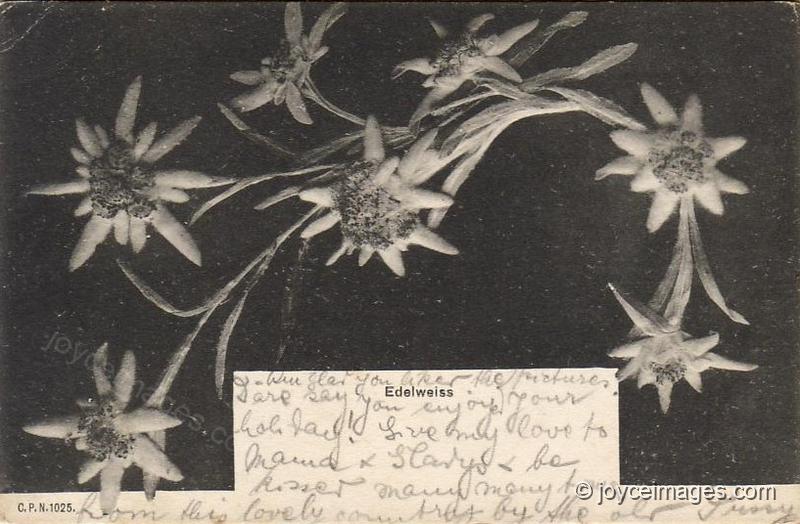 I am glad you liked the pictures.
Edelweiss
I dare say you enjoyed your
holiday! Give my love to
Mama & Gladys & be
kissed many many times
C.P.N. 1025.
from this lovely country by the old
© joyceimages.com
joyceimages.com